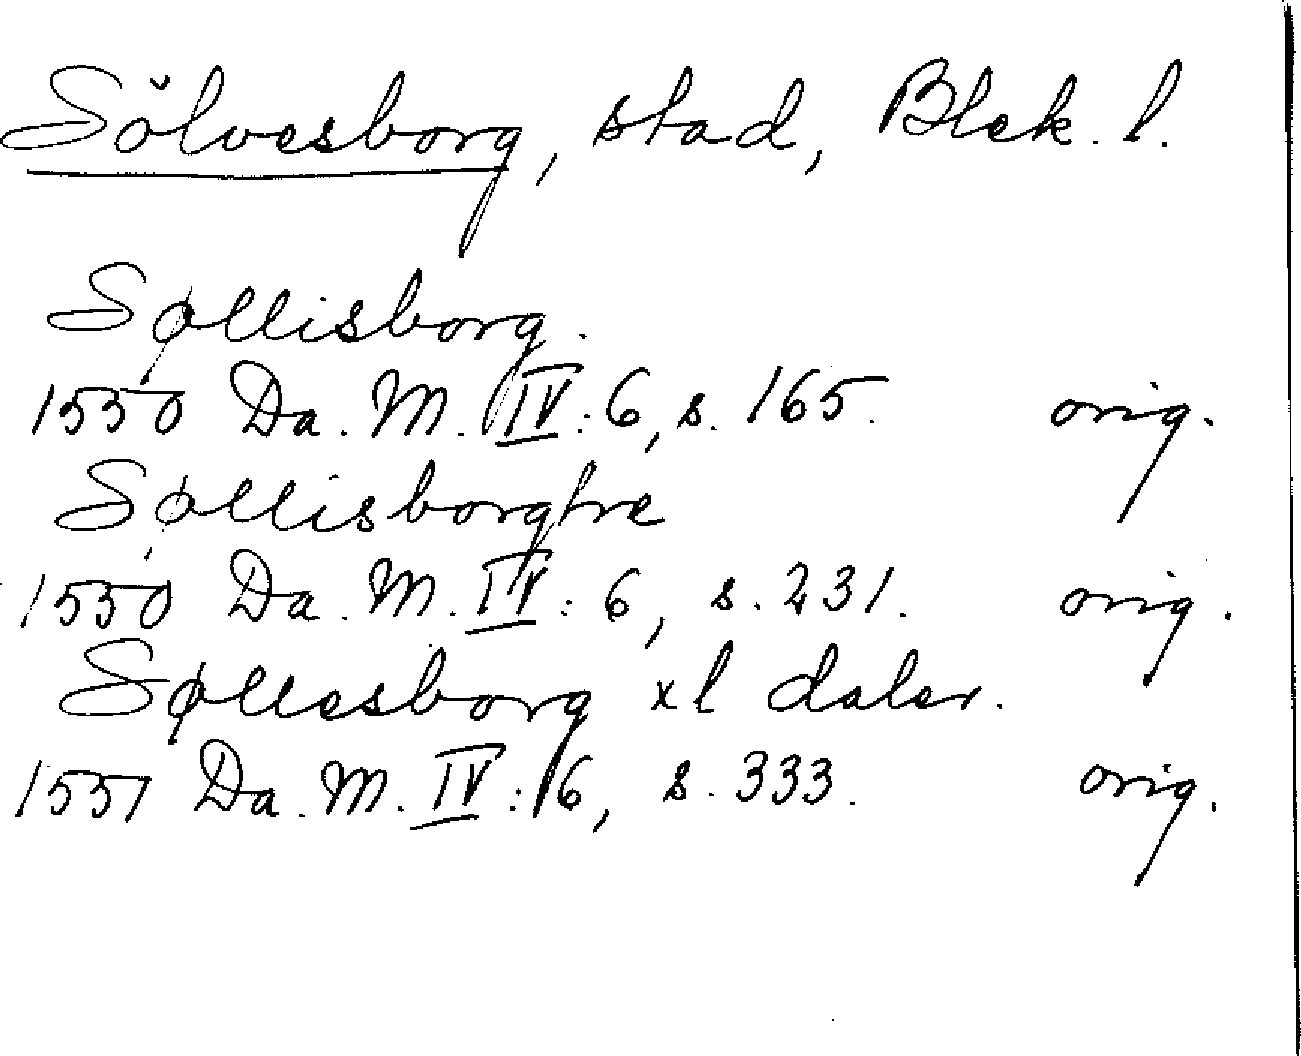 Sölvesborg, stad, Blek. l.
Søllisborg.
1550 Da. M. IV: 6, s. 165. orig.
Søllisborghre
1550 Da. M. IV: 6, s. 231. orig.
Søllesborg xl daler.
1551 Da. M. IV: 6, s. 333. orig.